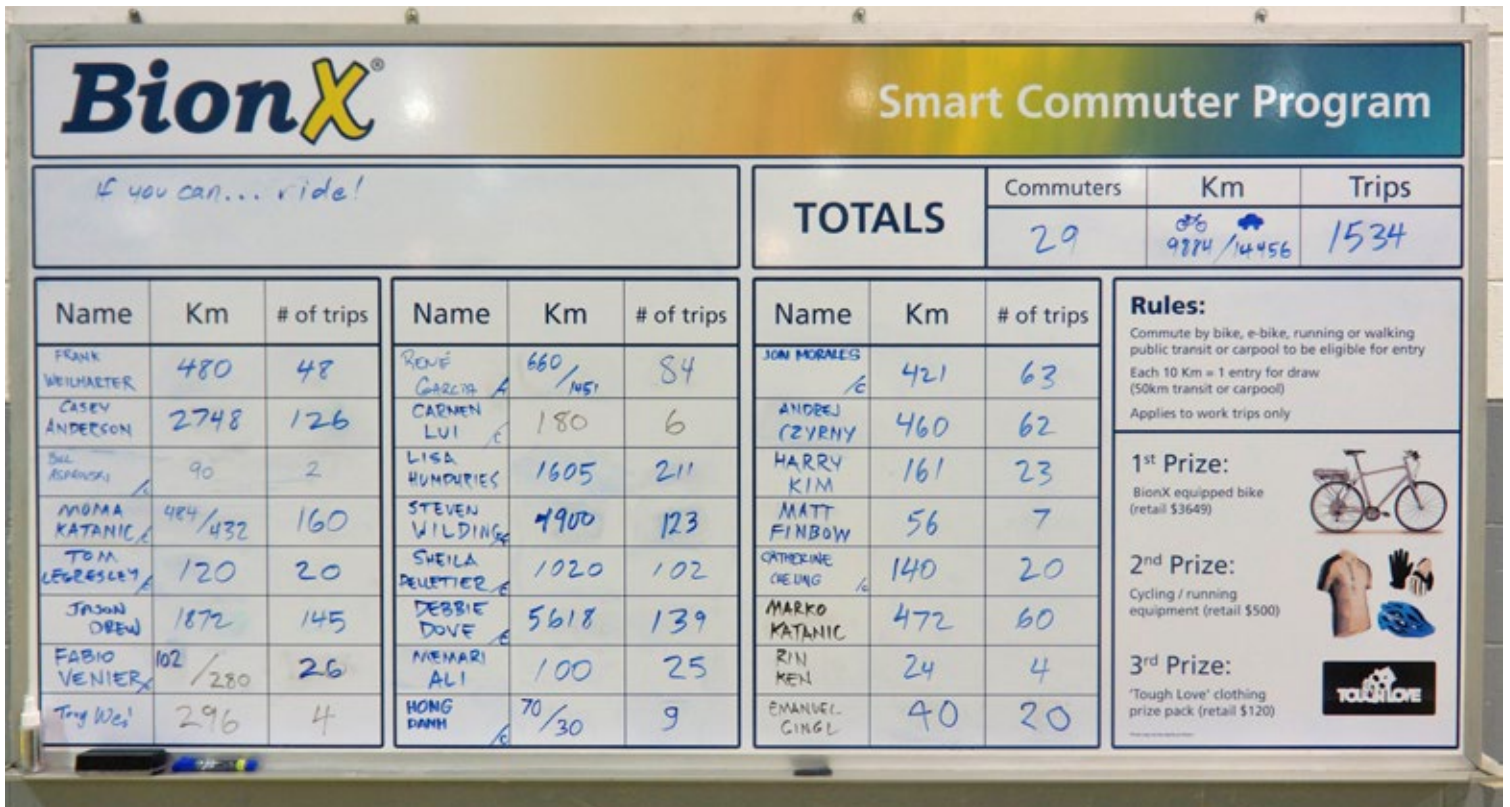 BionX®
Smart Commuter Program
If you can... ride!
TOTALS
Commuters Km Trips
29 9884/14456 1534
Name Km # of trips
FRANK
WEILHARTER 480 48
CASEY
ANDERSON 2748 126
90 2
MOMA
KATANIC /c 484/432 160
TOM
LEGRESLEY /c 120 20
JASON
DREW 1872 145
FABIO
VENIER 102/280 26
Tony Wei 296 4
Name Km # of trips
RENÉ
GARCIA 660/1451 84
CARMEN
LUI /c 180 6
LISA
HUMPHRIES 1605 211
STEVEN
WILDING 4900 123
SHEILA
PELLETIER /c 1020 102
DEBBIE
DOVE /c 5618 139
MEMARI
ALI 100 25
HONG
DANH /c 70/30 9
Name Km # of trips
JON MORALES
/c 421 63
ANDREJ
CZYRNY 460 62
HARRY
KIM 161 23
MATT
FINBOW 56 7
CATHERINE
CHEUNG /c 140 20
MARKO
KATANIC 472 60
RIN
KEN 24 4
EMANUEL
GINGL 40 20
Rules:
Commute by bike, e-bike, running or walking
public transit or carpool to be eligible for entry
Each 10 Km = 1 entry for draw
(50km transit or carpool)
Applies to work trips only
1st Prize:
BionX equipped bike
(retail $3649)
2nd Prize:
Cycling / running
equipment (retail $500)
3rd Prize:
'Tough Love' clothing
prize pack (retail $120)
TOUGH LOVE